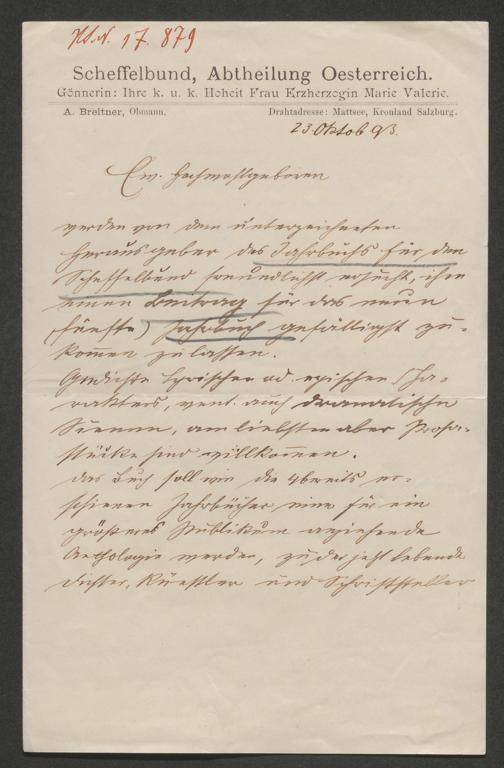 H.I.N. 17.879
Scheffelbund, Abtheilung Oesterreich.
Gönnerin: Ihre k. u. k. Hoheit Frau Erzherzogin Marie Valerie.
A. Breitner, Obmann.
Drahtadresse: Mattsee, Kronland Salzburg.
23. Oktob 93.
Ew. Hochwohlgeboren
werden von dem unterzeichneten
Herausgeber des Jahrbuchs für den
Scheffelbund freundlichst ersucht, ihm
einen Beitrag für das neue
(fünfte) Jahrbuch gefälligst zu-
kommen zu lassen.
Gedichte lyrischen od. epischen Cha-
rakters, event. auch dramatische
Scenen, am liebsten aber Prosa-
stücke sind willkommen.
Das Buch soll wie die 4 bereits er-
schienen Jahrbücher eine für ein
größeres Publikum anziehende
Anthologie werden, zu der jetzt lebende
Dichter, Künstler und Schriftsteller